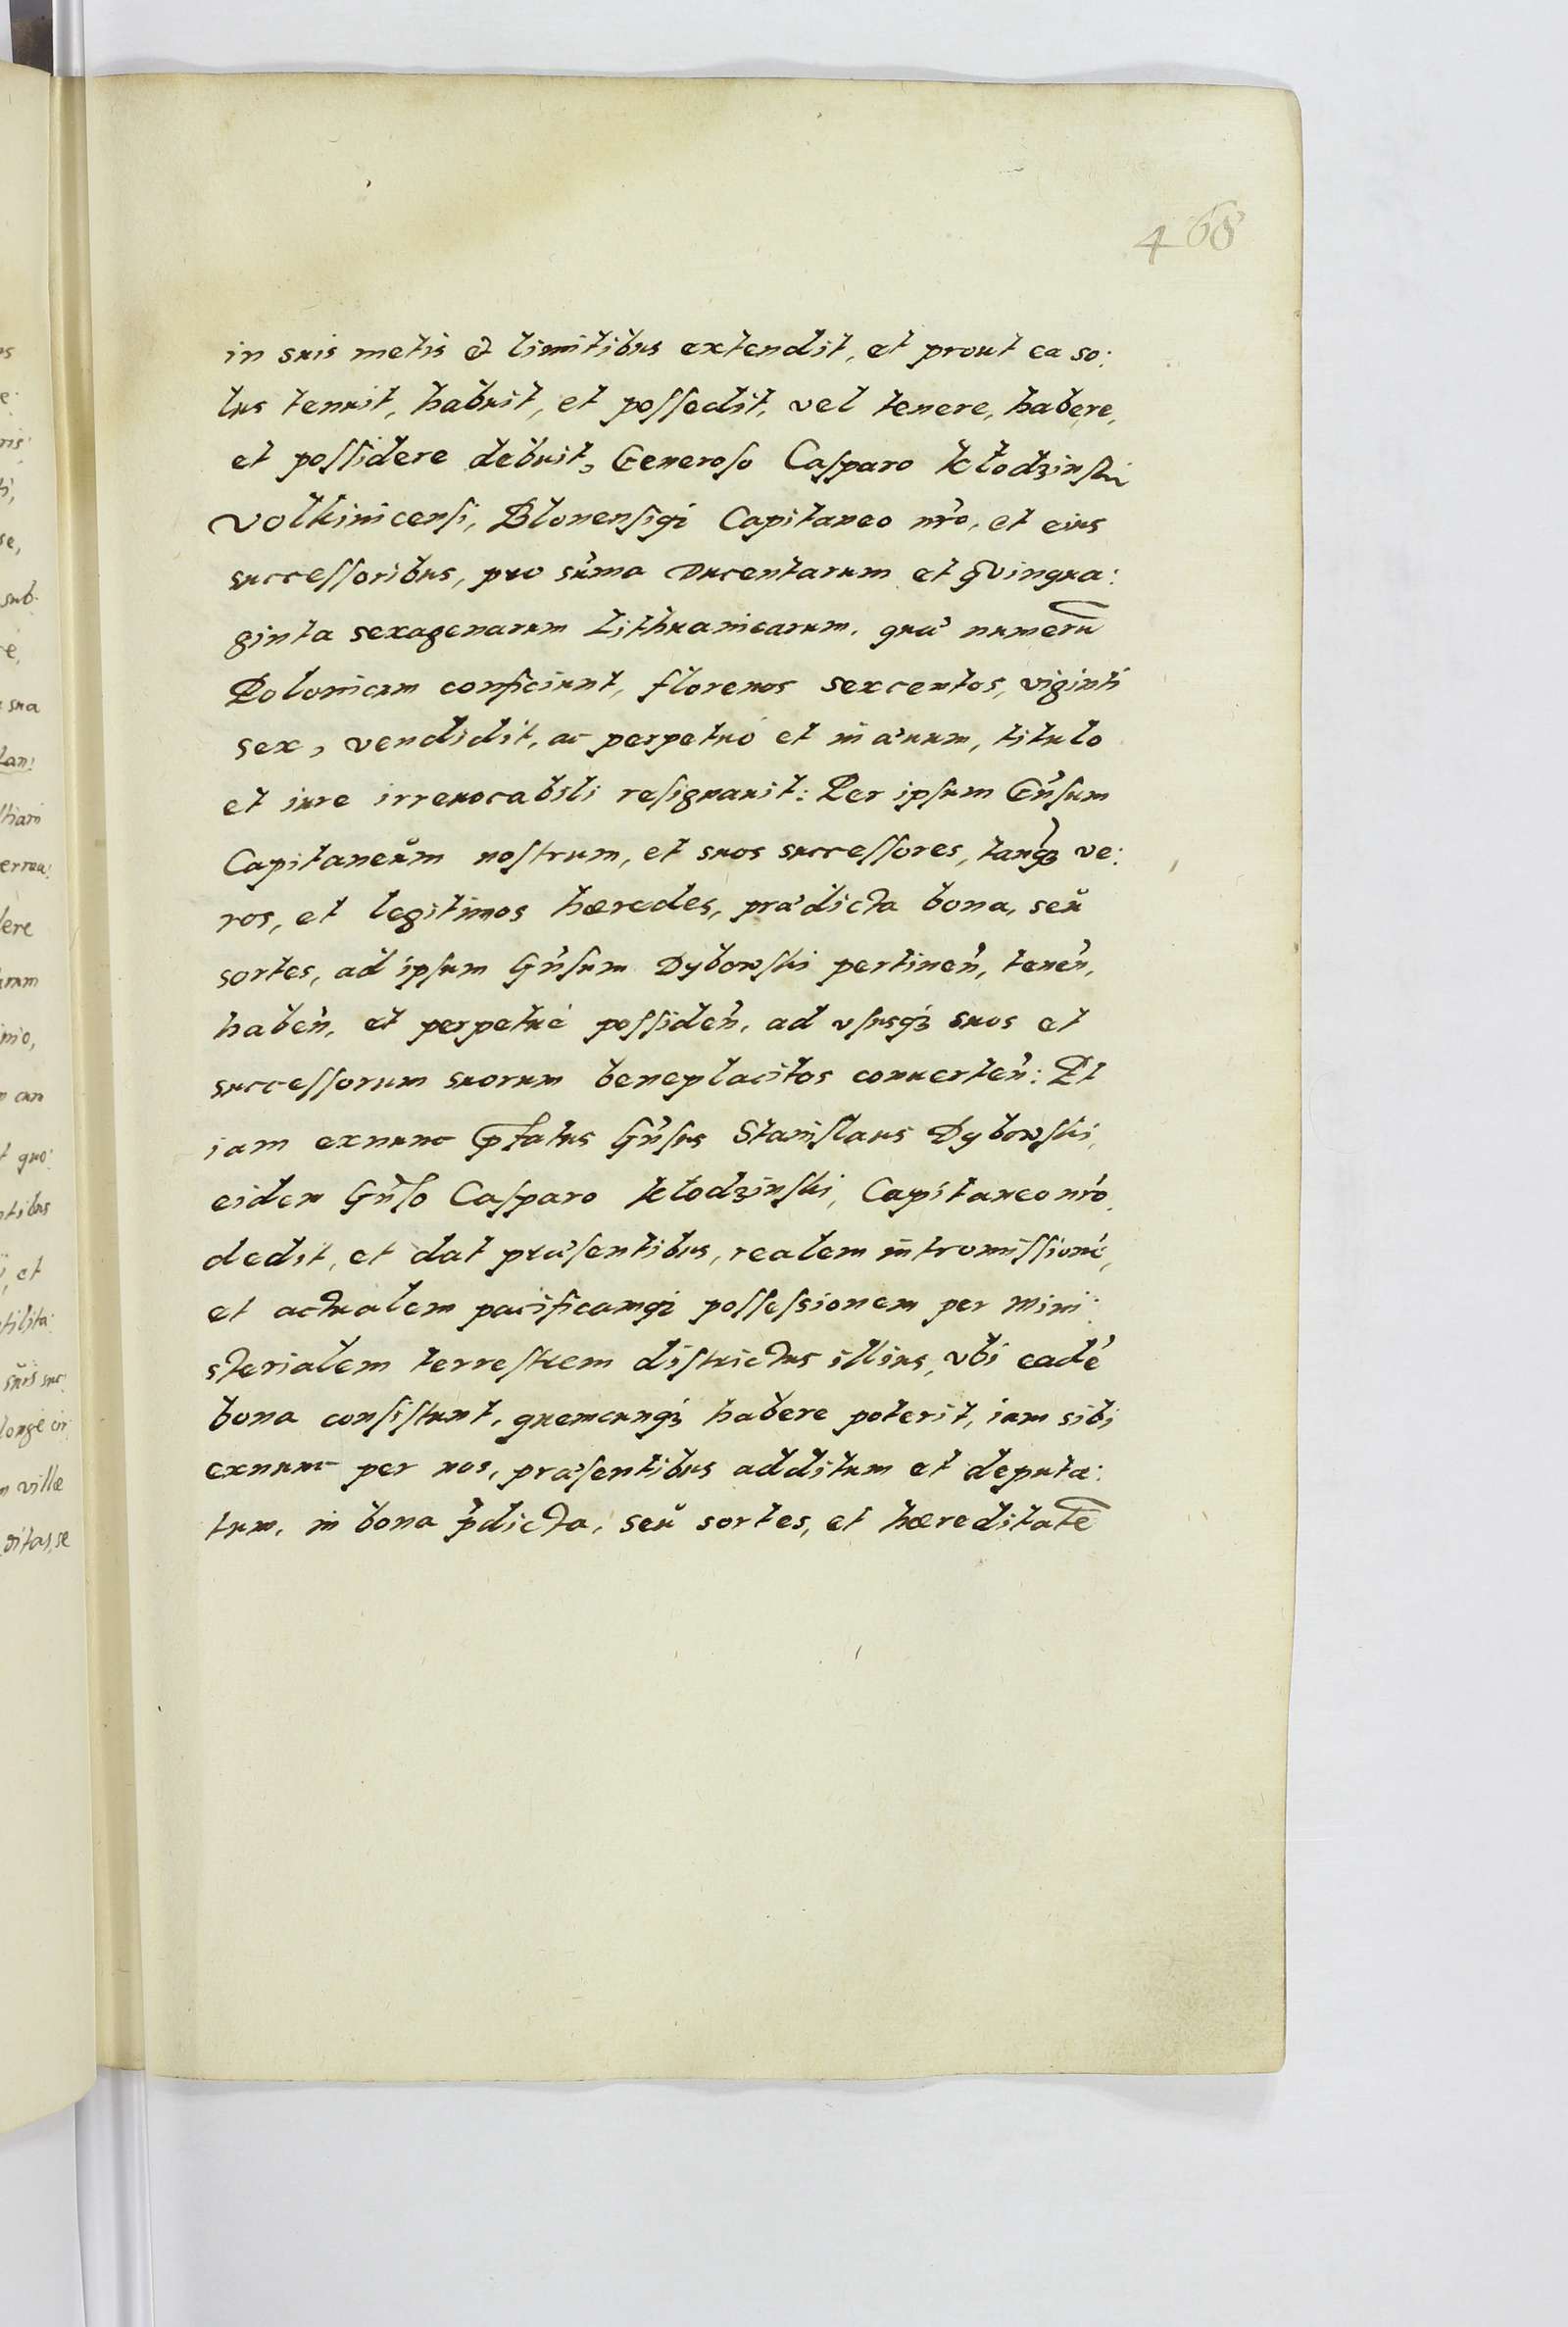 468
in suis metis et limitibus extendit, et prout ea so:
lus tenuit, habuit, et possedit, vel tenere, habere,
et possidere debuit, Generoso Casparo Kłodzinski
Volkinicensi, Blonensiqз Capitaneo nr̃o, et eius
successoribus, pro sũma Ducentarum et Qvinqua:
ginta sexagenarum Lithuanicarum, quæ numerũ
Polonicum conficiunt, florenos sexcentos, viginti
sex, vendidit, ac perpetuò et in æuum, titulo
et iure irreuocabili resignauit: Per ipsum Gñsum
Capitaneum nostrum, et suos successores, tanqз ve:
ros, et legitimos hæredes, prædicta bona, seu
sortes, ad ipsum Gñsum Dybowski pertineñ, teneñ,
habeñ, et perpetuè possideñ, ad vsusqз suos et
successorum suorum beneplacitos conuerteñ: Et
iam exnunc p̃fatus Gñsus Stanislaus Dybowski,
eidem Gñso Casparo Kłodzinski, Capitaneo nr̃o,
dedit, et dat præsentibus, realem intromissionẽ,
et actualem pacificamqз possessionem per Mini:
sterialem terrestrem districtus illius, vbi eadẽ
bona consistunt, quemcunqз habere poterit, iam sibi
exnunc per nos, præsentibus additum et deputa:
tum, in bona p̃dicta, seu sortes, et hæreditatẽ